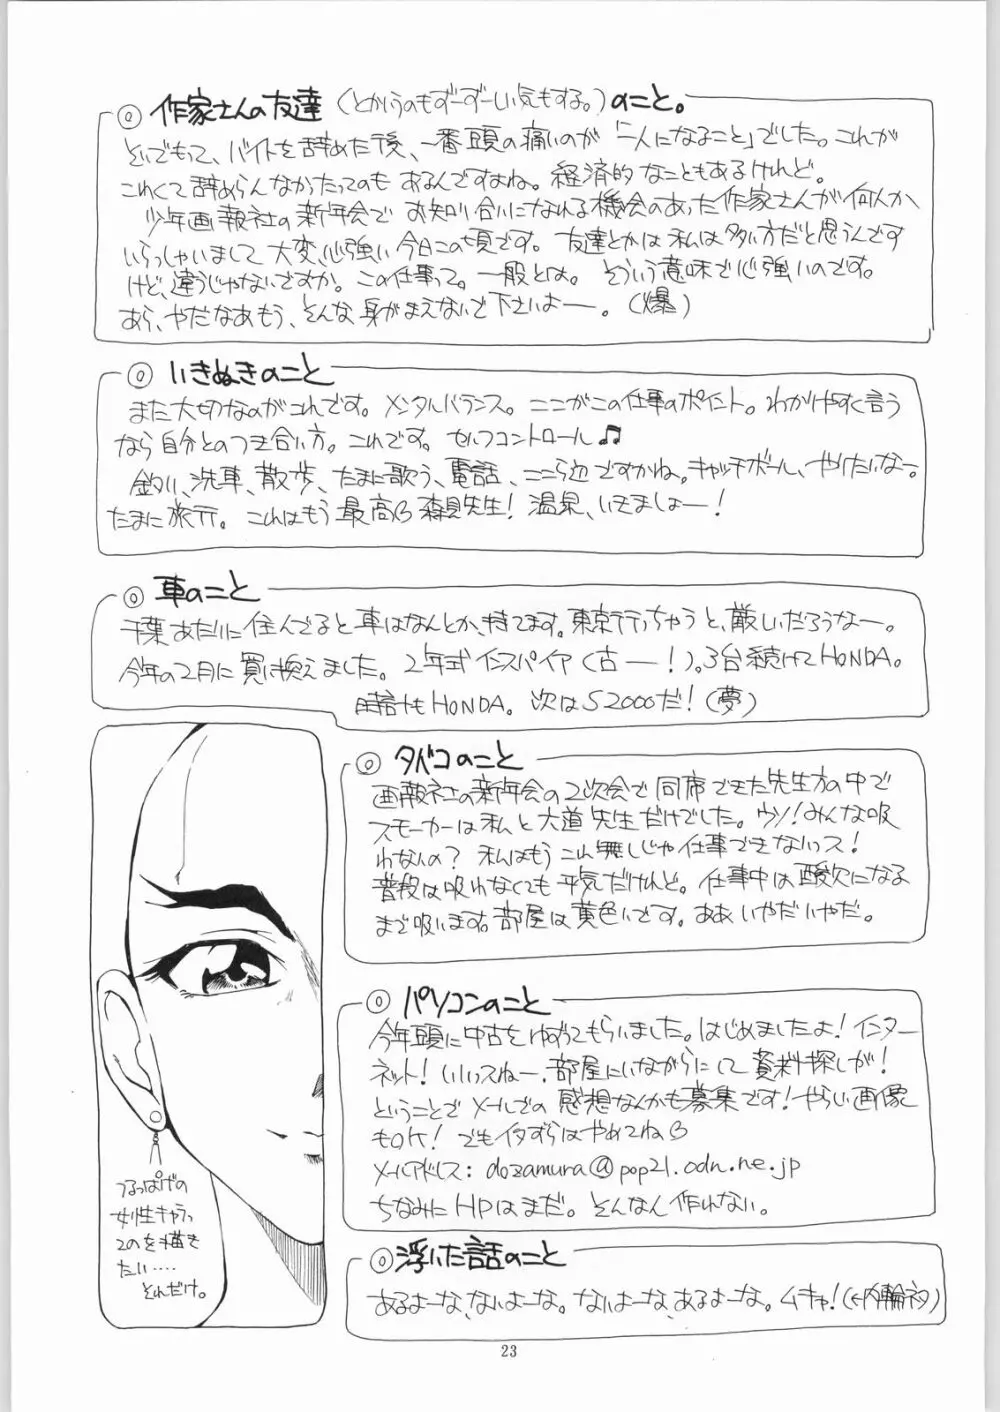 ◎作家さんの友達(とかいうのもずーずーしい気もする。)のこと。
といでもって、バイトを辞めた後、一番頭の痛いのが「一人になること」でした。これが
これくて辞めらんなかったってのもあるんですよね。経済的なこともあるけれど。
少年画報社の新年会でお知り合いになれる機会のあった作家さんが何人か、
いらっしゃいまして大変、心強い今日この頃です。友達とかは私は多い方だと思うんです
けど、違うじゃないですか。この仕事って。一般とは。そういう意味で心強いのです。
あら、やだなあもう、そんな身がまえないで下さいよー。(爆)
◎いきぬきのこと
また大切なのがこれです。メンタルバランス。ここがこの仕事のポイント。わかりやすく言う
なら自分とのつき合い方。これです。セルフコントロール♫
釣り、洗車、散歩、たまに歌う、電話、ここら辺ですかね。キャッチボール、やりたいなー。
たまに旅行。これはもう最高 森見先生!温泉、いきましょー!
◎車のこと
千葉あたりに住んでると車はなんとか、持てます。東京行っちゃうと、厳しいだろうなー。
今年の2月に買い換えました。2年式インスパイア(古ー!)。3台続けてHONDA。
時計もHONDA。次はS2000だ!(夢)
◎タバコのこと
画報社の新年会の2次会で同席できた先生方の中で
スモーカーは私と大道先生だけでした。ウソ!みんな吸
わないの?私はもうこれ無しじゃ仕事できないっス!
普段は吸わなくても平気だけれど。仕事中は酸欠になる
まで吸います。部屋は黄色いです。ああいやだいやだ。
◎パソコンのこと
今年頭に中古をゆずってもらいました。はじめましたよ!インター
ネット!いいっスねー、部屋にいながらにして資料探しが!
ということでメールでの感想なんかも募集です!やらしい画像
もOK!でもイタずらはやめてね
メールアドレス:dozamura@pop21.odn.ne.jp
ちなみにHPはまだ。そんなん作れない。
つるっぱげの
女性キャラっ
てのを描き
たい……
それだけ。
◎浮いた話のこと
あるよーな、ないよーな。ないよーな、あるよーな。ムキャ!(←内輪ネタ)
23